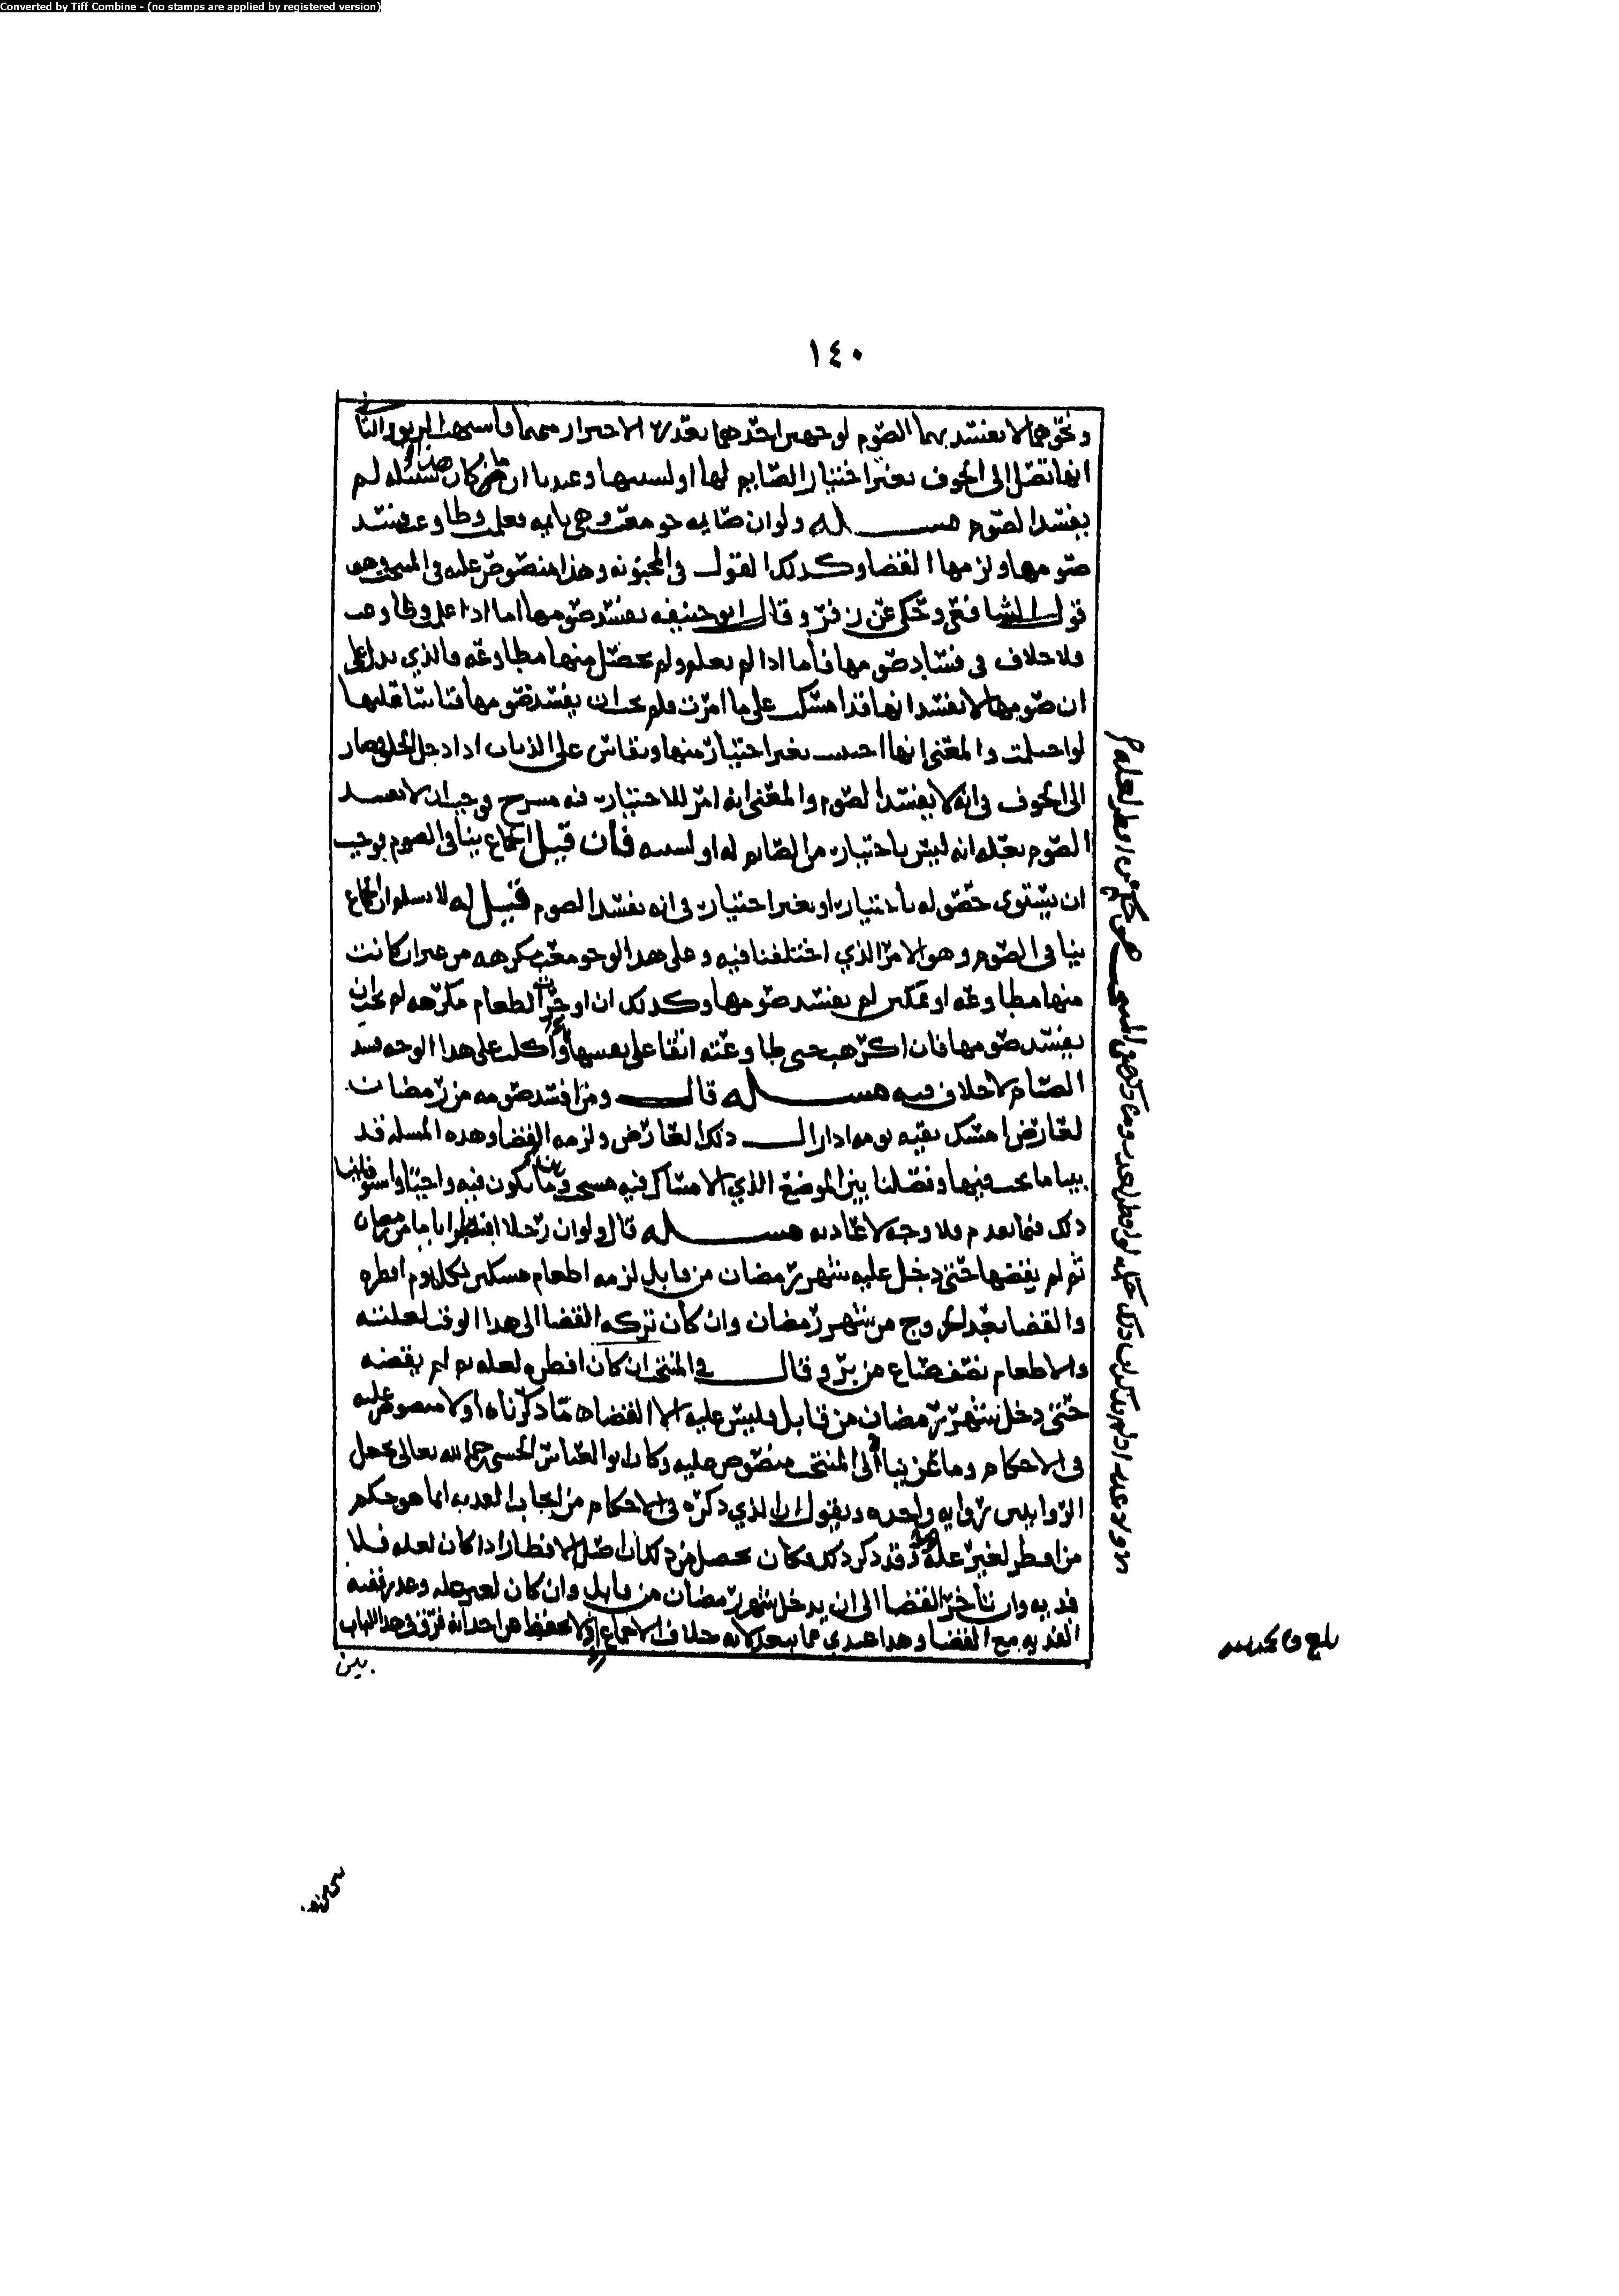 Converted by Tiff Combine - (no stamps are applied by registered version)
١٤٠
ونحوهما لا يفسد بهما الصوم لوجهين احدهما تعذر الاحتراز منهما فاشبها الريق والثاني
انها تصل الى الجوف بغير اختيار الصايم لها او لسببها وعندنا ان ما كان هذا سبيله لم
يفسد الصوم مسله ولو ان صايمه جومعت وهي نايمه فعلمت وطاوعت فسد
صومها ولزمها القضا وكذلك القول في المجنونه وهذا منصوص عليه في المنتخب وهو
قول الشافعي وحكي عن زفر وقال ابو حنيفه يفسد صومها اما اذا علمت وطاوعت
فلا خلاف في فساد صومها فأما اذا لم تعلم ولم يحصل منها مطاوعه فالذي يدل على
ان صومها لا يفسد انها قد امسكت على ما امرت فلم يجب ان يفسد صومها قياسا عليها
لو احتلمت والمعنى انها بغير اختيار منها ويقاس على الذباب اذا دخل الحلق وصار
الى الجوف في انه لا يفسد الصوم والمعنى انه امر للاختيار فيه مسرح فوجب ان لا يفسد
الصوم بعله انه ليس باختيار من الصايم له او لسببه فان قيل الجماع ينافي الصوم فوجب
ان يستوي حصوله باختيار او بغير اختيار في انه يفسد الصوم قيل له لا نسلم ان الجماع
ينافي الصوم وهو الامر الذي اختلفنا فيه وعلى هذا لو جومعت مكرهه من غير ان كانت
منها مطاوعه او تمكين لم يفسد صومها وكذلك ان اوجرت الطعام مكرهه لم يجب ان
يفسد صومها فان اكرهت حتى طاوعته اتقا على نفسها او اكلت على هذا الوجه فسد
الصيام لا خلاف فيه مسله قال ومن افسد صومه من رمضان
لعارض امسك بقيه يومه اذا زال ذلك العارض ولزمه القضا وهذه المسله قد
بينا ما يجب فيها وفصلنا بين الموضع الذي الامساك فيه مستحب وما يكون فيه واجبا واستوفينا
ذلك فيما تقدم فلا وجه لاعادته مسله قال ولو ان رجلا افطر اياما من رمضان
ثم لم يقضها حتى دخل عليه شهر رمضان من قابل لزمه اطعام مسكين لكل يوم افطره
والقضا بعد الخروج من شهر رمضان وان كان تركه القضا الى هذا الوقت لعله
والاطعام نصف صاع من بر وقال في المنتخب ان كان افطره لعله ثم لم يقضه
حتى دخل شهر رمضان من قابل فليس عليه الا القضا ما ذكرناه اولا منصوص عليه
في الاحكام وما عزينا الى المنتخب منصوص عليه وكان ابو العباس الحسني رحمه الله تعالى يجعل
الروايتين روايه واحده ويقول ان الذي ذكره في الاحكام من ايجاب الفديه انما هو حكم
من افطر لغير عله وقد ذكر ذلك فكان يحصل من ذلك ان اصل الافطار اذا كان لعله فلا
فديه وان تأخر القضا الى ان يدخل شهر رمضان من قابل وان كان لغير عله وعذر ففيه
الفديه مع القضا وهذا عندي مما يبعد لانه خلاف الاجماع اذ لا يحفظ عن احد انه فرق في هذا الباب
بين